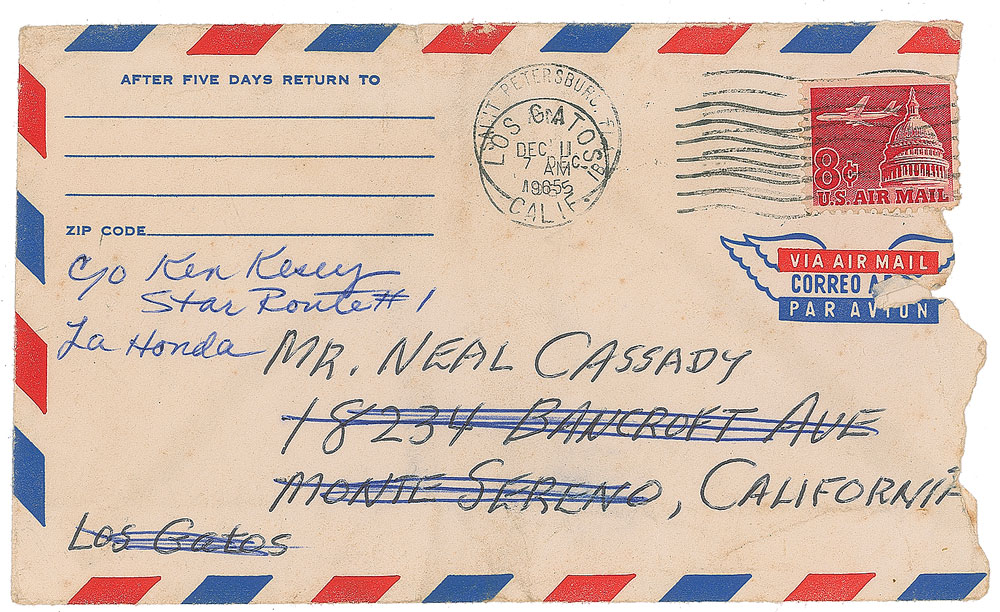 AFTER FIVE DAYS RETURN TO
ZIP CODE
SAINT PETERSBURG, FLA
LOS GATOS
PM
DEC 11
7 DEC
AM
1965
CALIF.
8¢
U.S. AIR MAIL
VIA AIR MAIL
CORREO
PAR AVION
c/o Ken Kesey
Star Route #1
La Honda
MR. NEAL CASSADY
18234 BANCROFT AVE
MONTE SERENO, CALIFORNIA
Los Gatos